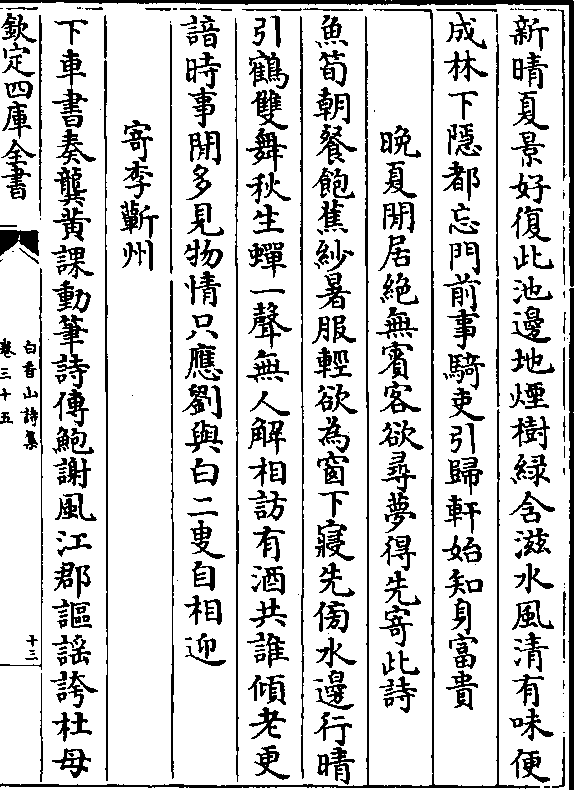 新晴夏景好復此池邊地煙樹緑含滋水風清有味便
成林下隠都忘門前事騎吏引歸軒始知身富貴
晚夏閒居絶無賓客欲尋夢得先寄此詩
魚筍朝餐飽蕉紗暑服輕欲為窗下寢先傍水邊行晴
引鶴雙舞秋生蟬一聲無人解相訪有酒共誰傾老更
諳時事閒多見物情只應劉與白二叟自相迎
寄李蘄州
下車書奏龔黄課動筆詩傳鮑謝風江郡謳謡誇杜母
欽定四庫全書
白香山詩集
卷三十五
十三